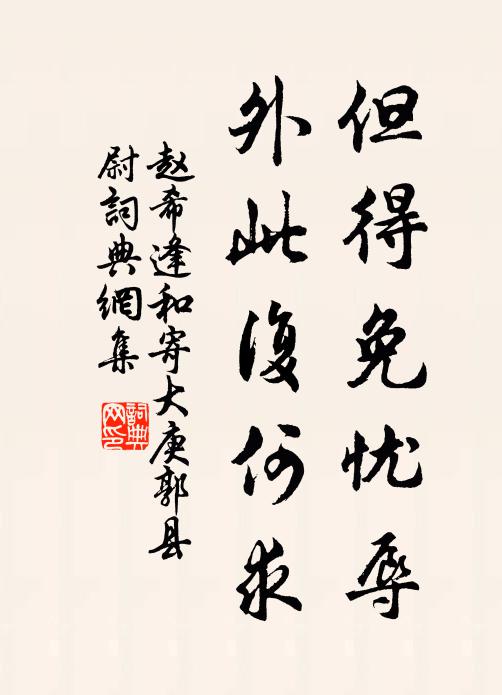 但得免忧辱
外此復何求
赵希逢和寄大庾郭县
尉詞典網集
詞典
网印